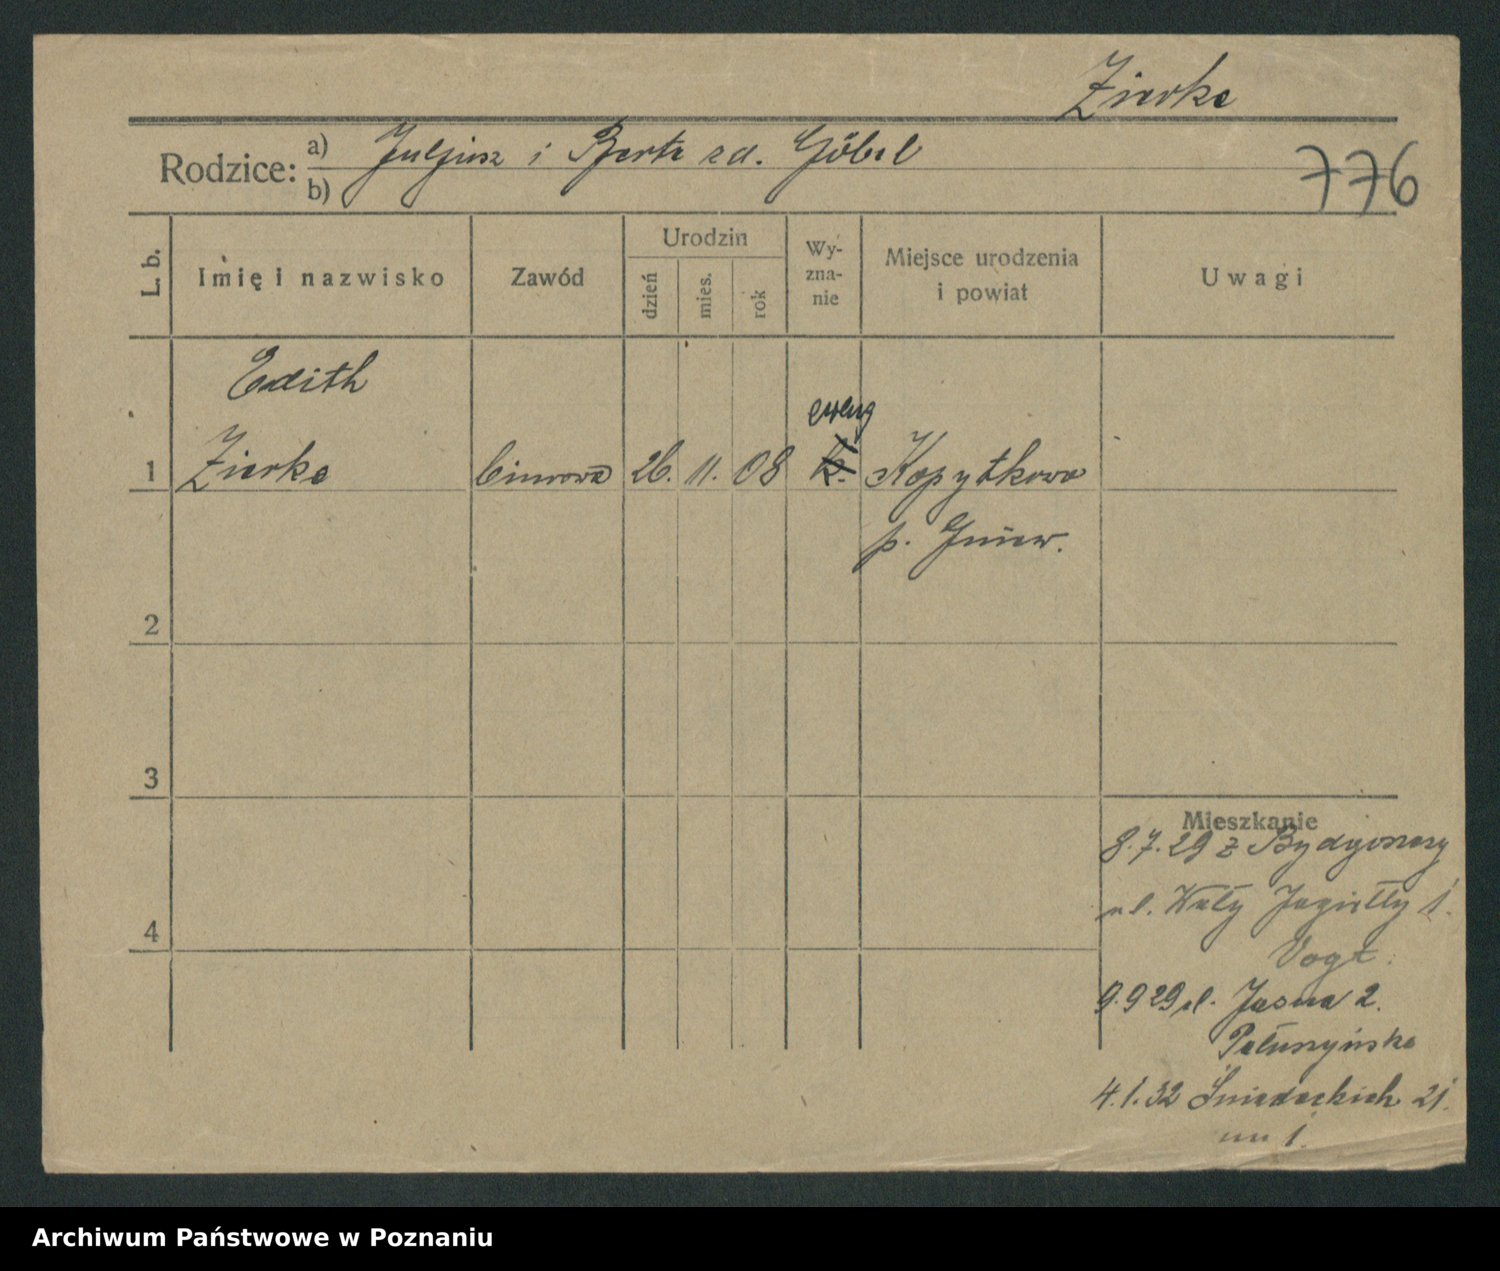 Zierke
Rodzice: a) Juljusz i Berta zd. Göbel
b)
776
L. b.
Imię i nazwisko
Zawód
Urodzin
dzień
mies.
rok
Wy-
zna-
nie
Miejsce urodzenia
i powiat
Uwagi
Edith
ewang
1 Zierke biurowa 26. 11. 08 k. Kopytkowo
p. Gniew.
2
3
4
Mieszkanie
8.7.29 z Bydgoszczy
ul. Wały Jagiełły 1.
Vogt.
9.9 29 ul. Jasna 2.
Pałuszyńska
4.1.32 Śniadeckich 21.
m 1.
Archiwum Państwowe w Poznaniu